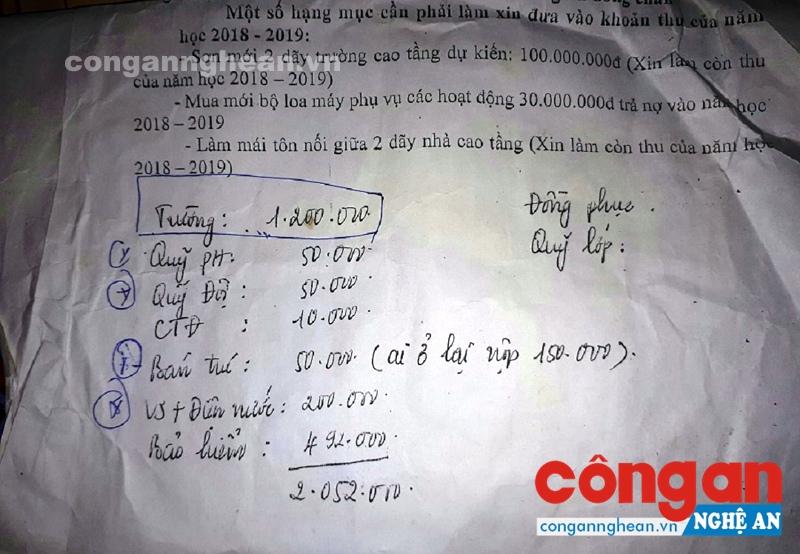 Một số hạng mục cần phải làm xin đưa vào khoản thu của năm
học 2018 - 2019:
- Sơn mới 2 dãy trường cao tầng dự kiến: 100.000.000đ (Xin làm còn thu
của năm học 2018 – 2019)
- Mua mới bộ loa máy phụ vụ các hoạt động 30.000.000đ trả nợ vào năm học
2018 – 2019
- Làm mái tôn nối giữa 2 dãy nhà cao tầng (Xin làm còn thu của năm học
2018 – 2019)
congannghean.vn
Tường: 1.200.000
Quỹ PH: 50.000
Quỹ Đội: 50.000
CTĐ : 10.000
Bán trú: 50.000 (ai ở lại nộp 150.000).
VS + Điện nước: 200.000
Bảo hiểm: 492.000
2.052.000
Đồng phục.
Quỹ lớp:
côngan
congannghean.vn
NGHỆ AN